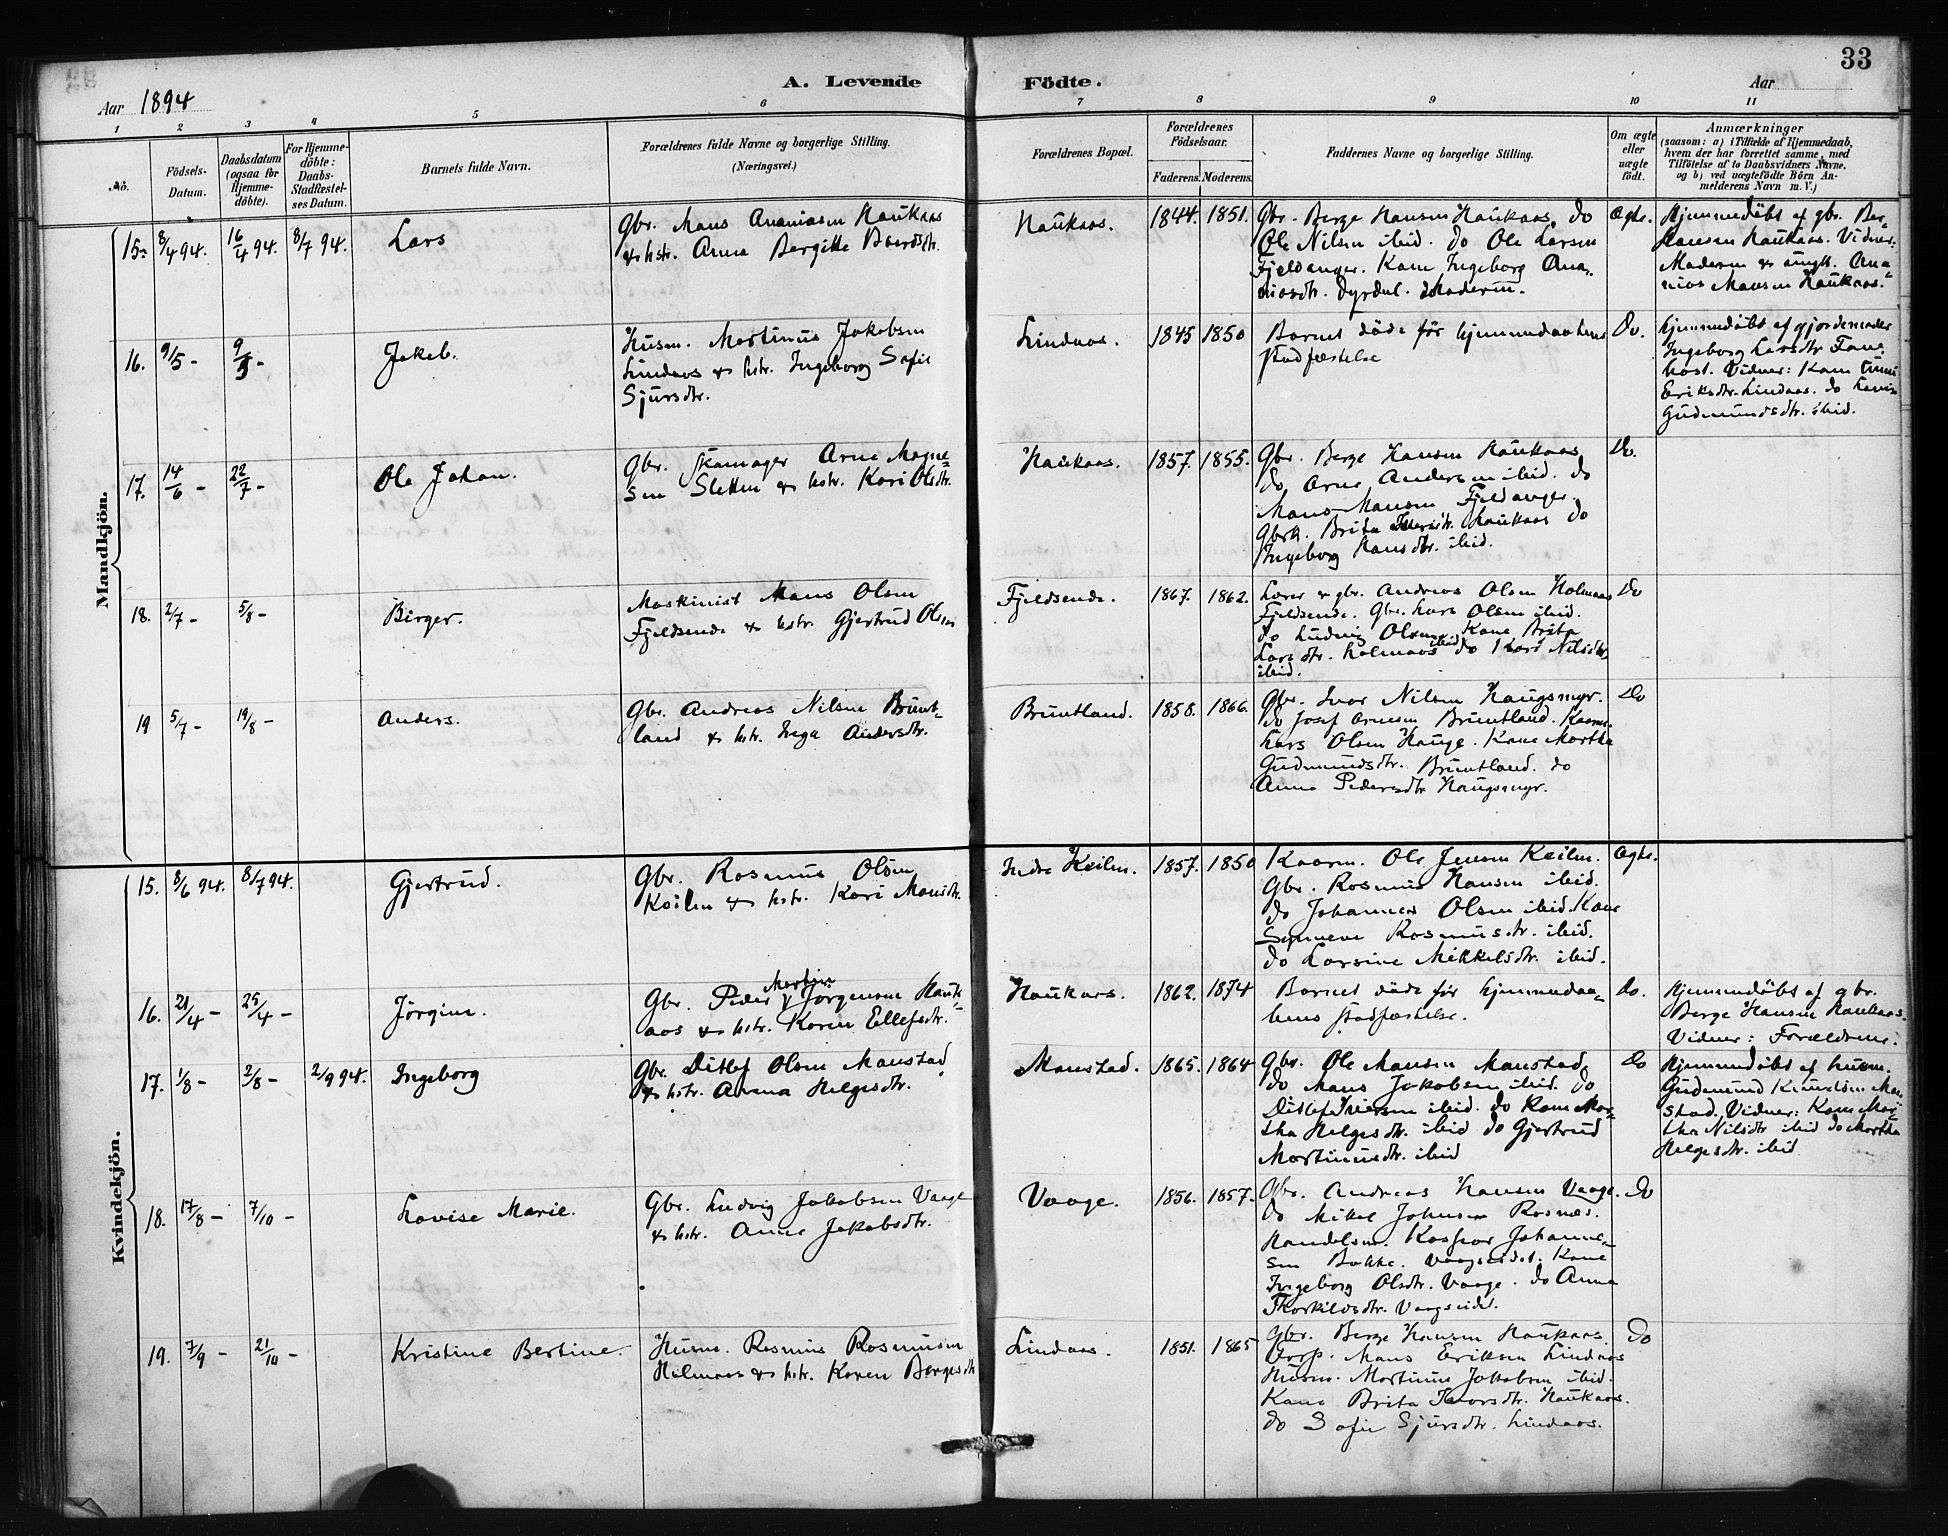 33
A. Levende Födte.
Aar 1894
Aar
1 2 3 4 5 6 7 8 9 10 11
No.
Födsels-
Datum.
Daabsdatum
(ogsaa for
Hjemme-
döbte).
For Hjemme-
döbte:
Daabs-
Stadfæstel-
ses Datum.
Barnets fulde Navn.
Forældrenes fulde Navne og borgerlige Stilling.
(Næringsvei.)
Forældrenes Bopæl.
Forældrenes
Födselsaar.
Faderens. Moderens.
Faddernes Navne og borgerlige Stilling.
Om ægte
eller
uægte
födt.
Anmærkninger
(saasom: a) i Tilfælde af Hjemmedaab,
hvem der har forrettet samme, med
Tilföielse af to Daabsvidners Navne,
og b) ved uægtefödte Börn An-
melderens Navn m. V.)
Mandkjön.
15. 8/4 94. 16/4 94. 8/7 94.
Lars
Gbr. Mons Ananiasen Haukaas
& hstr. Anna Bergitte Baardsdtr.
Haukaas.
1844. 1851.
Gbr. Berge Hansen Haukaas. do
Ole Nilsen ibid. do Ole Larsen
Fjeldanger. Kone Ingeborg Ana-
niasdtr. Dyrdal. Moderen.
Ægte.
Hjemmedöbt af gbr. Ber-
Hansen Haukaas. Vidner:
Moderen & ungk. Ana-
nias Monsen Haukaas.
16. 9/5 - 9/5 -
Jakob.
Husm. Martinus Jakobsen
Lindaas & hstr. Ingeborg Sofie
Sjursdtr.
Lindaas.
1845 1850
Barnet döde för hjemmedaabens
stadfæstelse
Do.
Hjemmedöbt af gjordemoder
Ingeborg Larsdtr Fane-
Vidner: Kone
Eriksdtr. Lindaas. do
Gudmundsdtr. ibid.
17. 14/6 - 22/7 -
Ole Johan.
Gbr. Skomager Arne Magne-
sen Sletten & hstr. Kari Olsdtr.
Haukaas.
1857. 1855.
Gbr. Berge Hansen Haukaas
do Arne Andersen ibid. do
Mons Monsen Fjeldanger.
Gbrk. Brita Haukaas do
Ingeborg Hansdtr. ibid.
Do.
18. 2/7 - 5/8 -
Birger.
Maskinist Mons Olsen
Fjeldsende & hstr. Gjertrud Olsen
Fjeldsende.
1867. 1862.
Lærer & gbr. Andreas Olsen Holmaas
Fjeldsende. Gbr. Lars Olsen ibid.
do Ludvig Olsen ibid. Kone Brita
Larsdtr. Holmaas do Kari Nilsdtr.
ibid.
Do
19 5/7 - 19/8 -
Anders.
Gbr. Andreas Nilsen Brunt-
land & hstr. Inga Andersdtr.
Bruntland.
1858. 1866.
Gbr. Ivar Nilsen Haugsmyr.
do Josef Arnesen Bruntland.
Lars Olsen Hauge. Kone Martha
Gudmundsdtr. Bruntland. do
Anna Pedersdtr Haugsmyr.
Do
Kvindekjön.
15. 8/6 94. 8/7 94.
Gjertrud.
Gbr. Rasmus Olsen
Keilen & hstr. Kari Monsdtr.
Indre Keilen.
1857. 1850
Kaarm. Ole Jensen Keilen.
Gbr. Rasmus Hansen ibid.
do Johannes Olsen ibid. Kone
Synneve Rasmusdtr. ibid.
do Larsine Mikkelsdtr. ibid.
Ægte.
16. 21/4 - 25/4 -
Jörgine.
Gbr. Peder Martin Jörgensen Hauk-
aas & hstr. Karen Ellefsdtr.
Haukaas.
1862. 1874
Barnet döde för hjemmedaa-
bens stadfæstelse.
do.
Hjemmedöbt af gbr.
Berge Hansen Haukaas.
Vidner: Forældrene.
17. 1/8 - 2/8 - 2/9 94.
Ingeborg
Gbr. Ditlef Olsen Monstad
& hstr. Anna Helgesdtr.
Monstad.
1865. 1864
Gbr. Ole Monsen Monstad
do Mons Jakobsen ibid. do
Ditlef Iversen ibid. do Kone Mar-
tha Helgesdtr. ibid do Gjertrud
Martinusdtr. ibid
Do
Hjemmedöbt af husm.
Gudmund Knudsen Mon-
stad. Vidner: Kone Mar-
tha Nilsdtr ibid do Martha
Helgesdtr. ibid
18. 17/8 - 7/10 -
Lovise Marie.
Gbr. Ludvig Jakobsen Vaage
& hstr. Anne Jakobsdtr.
Vaage.
1856. 1857.
Gbr. Andreas Hansen Vaage.
do Mikal Johnsen Rosnes.
Handelsm. Kaspar Johanne-
sen Bakke. Vaagseidet. Kone
Ingeborg Olsdtr. Vaage. do Anna
Thorkildsdtr. Vaagseidet.
Do
19. 7/9 - 21/10 -
Kristine Bertine.
Husm. Rasmus Rasmusen
Holmaas & hstr. Karen Bergesdtr
Lindaas.
1851. 1865
Gbr. Berge Hansen Haukaas.
Forp. Mons Eriksen Lindaas
Husm. Martinus Jakobsen ibid.
Kone Brita Ivarsdtr. Haukaas.
do Sofie Sjursdtr. Lindaas.
Do